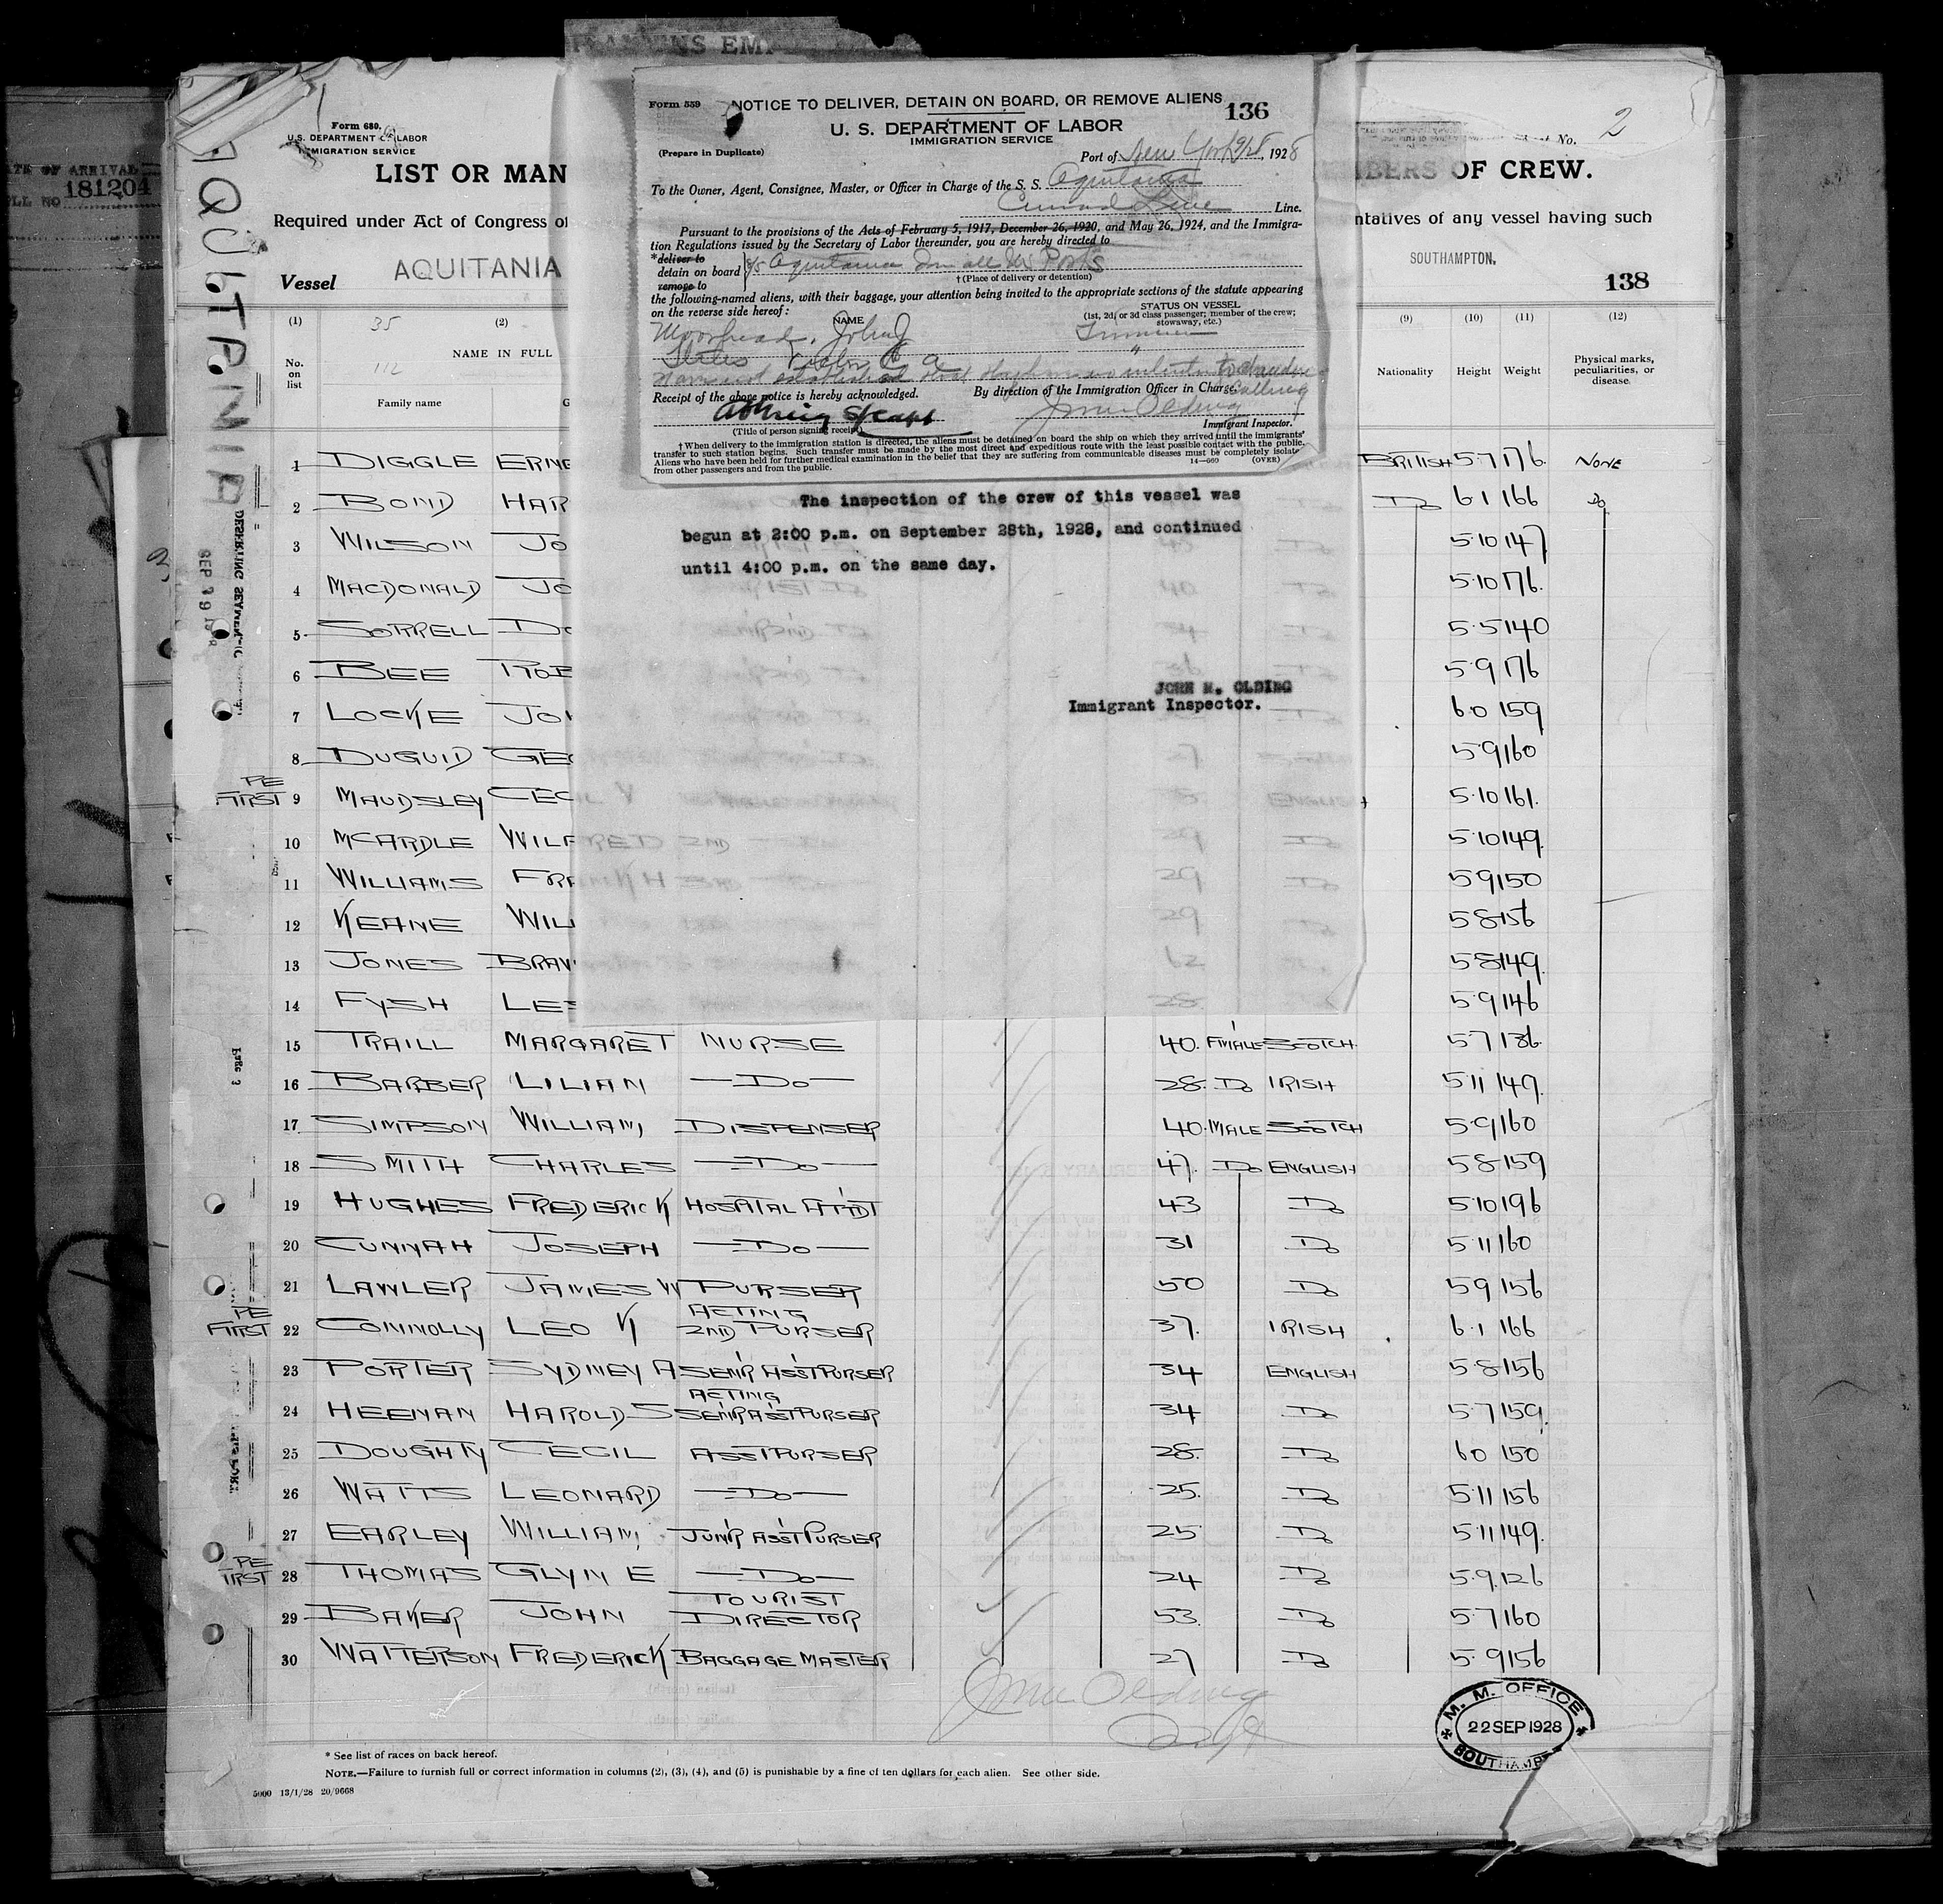 Form 680.
U. S. DEPARTMENT OF LABOR
IMMIGRATION SERVICE
LIST OR MAN
Required under Act of Congress of
Vessel AQUITANIA
AQUITANIA
DATE OF ARRIVAL
181204
Form 559 NOTICE TO DELIVER, DETAIN ON BOARD, OR REMOVE ALIENS 136
U. S. DEPARTMENT OF LABOR
IMMIGRATION SERVICE
(Prepare in Duplicate)
Port of New York 9/28, 1928
To the Owner, Agent, Consignee, Master, or Officer in Charge of the S. S. Aquitania
Cunard Line Line.
Pursuant to the provisions of the Acts of February 5, 1917, December 26, 1920, and May 26, 1924, and the Immigra-
tion Regulations issued by the Secretary of Labor thereunder, you are hereby directed to
*deliver to
detain on board S/S Aquitania In all US Ports
remove to † (Place of delivery or detention)
the following-named aliens, with their baggage, your attention being invited to the appropriate sections of the statute appearing
on the reverse side hereof:
NAME
STATUS ON VESSEL
(1st, 2d, or 3d class passenger; member of the crew;
stowaway, etc.)
Moorhead, John J Trimmer
"
Receipt of the above notice is hereby acknowledged. By direction of the Immigration Officer in Charge.
John M Olding
(Title of person signing receipt) Immigrant Inspector.
† When delivery to the immigration station is directed, the aliens must be detained on board the ship on which they arrived until the immigrants'
transfer to such station begins. Such transfer must be made by the most direct and expeditious route with the least possible contact with the public.
Aliens who have been held for further medical examination in the belief that they are suffering from communicable diseases must be completely isolated
from other passengers and from the public. 14—660 (OVER)
The inspection of the crew of this vessel was
begun at 2:00 p.m. on September 28th, 1928, and continued
until 4:00 p.m. on the same day.
JOHN M. OLDING
Immigrant Inspector.
No. 2
MBERS OF CREW.
ntatives of any vessel having such
SOUTHAMPTON,
138
(1) 35 (2) (9) (10) (11) (12)
No. on list 112 NAME IN FULL Nationality Height Weight Physical marks, peculiarities, or disease.
Family name
1 DIGGLE ERNE BRITISH 5·7 176 NONE
2 BOND HAR Do 6·1 166 Do
3 WILSON JO 5·10 147
4 MACDONALD JO 5·10 176
5 SORRELL DO 5·5 140
6 BEE ROB 5·9 176
7 LOCKE JO 6·0 159
8 DUGUID GEO 5·9 160
PE FIRST 9 MAUDSLEY CEC ENGLISH 5·10 161
10 MCARDLE WILFRED 2ND 29 Do 5·10 149
11 WILLIAMS FRANK H 29 Do 5·9 150
12 KEANE WILL 29 Do 5·8 156
13 JONES BRAW 62 5·8 149
14 FYSH LES 28 5·9 146
15 TRAILL MARGARET NURSE 40 FEMALE SCOTCH 5·7 136
16 BARBER LILIAN Do 28 Do IRISH 5·11 149
17 SIMPSON WILLIAM DISPENSER 40 MALE SCOTCH 5·9 160
18 SMITH CHARLES Do 47 Do ENGLISH 5·8 159
19 HUGHES FREDERICK HOSPITAL ATT'DT 43 Do 5·10 196
20 CUNNAH JOSEPH Do 31 Do 5·11 160
21 LAWLER JAMES W PURSER 50 Do 5·9 156
PE FIRST 22 CONNOLLY LEO K ACTING 2ND PURSER 37 IRISH 6·1 166
23 PORTER SYDNEY A SEN'R ASS'T PURSER 34 ENGLISH 5·8 156
24 HEENAN HAROLD S ACTING SEN'R ASS'T PURSER 34 Do 5·7 159
25 DOUGHTY CECIL ASS'T PURSER 28 Do 6·0 150
26 WATTS LEONARD Do 25 Do 5·11 156
27 EARLEY WILLIAM JUN'R ASS'T PURSER 25 Do 5·11 149
PE FIRST 28 THOMAS GLYN E Do 24 Do 5·9 126
29 BAKER JOHN TOURIST DIRECTOR 53 Do 5·7 160
30 WATTERSON FREDERICK BAGGAGE MASTER 27 Do 5·9 156
John M Olding
M. M. OFFICE
22 SEP 1928
SOUTHAMP
* See list of races on back hereof.
NOTE.—Failure to furnish full or correct information in columns (2), (3), (4), and (5) is punishable by a fine of ten dollars for each alien. See other side.
5000 13/1/28 20/9668